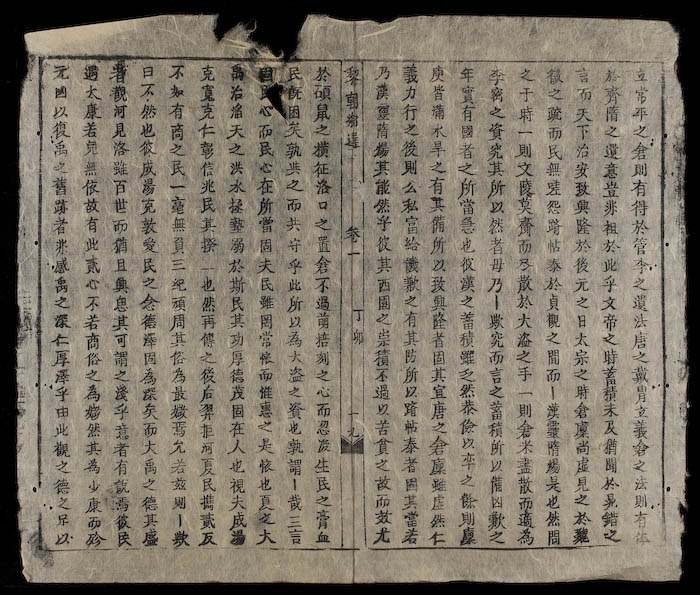 立常平之倉則有得於管李之遺法唐之戴胄立義倉之法則有侔
於齊隋之遺意豈非祖於此乎文帝之時蓄積未及猶聞於晁錯之
言而天下治安致興隆於後元之日太宗之時倉廩尚虛見之於魏
徵之疏而民無嗟怨躋帖泰於貞觀之間而丨漢靈隋煬是也然問
之于時一則文陵莫齋而散於大盗之手一則倉米盡散而適為
李密之資究其所以然者毋乃丨歟究而言之蓄積所以備凶歉之
年實有國者之所當急也彼漢之蓄積雖乏然恭儉以率之餘則廩
庾皆滿水旱之有其備所以致興隆者固其宜唐之倉廩虽虛然仁
義力行之後則公私富給饑歉之有其防所以躋帖泰者固其當若
乃漢靈隋煬其能然乎彼其西園之崇積不過以若貧之故而效尤
黎朝鄉選 卷一 丁卯 一九
於碩鼠之橫征洛口之置倉不過萌掊刻之心而忍浚生民之膏血
民既困矣孰與之而共守乎此所以為大盗之資也執謂丨哉三言
固民心而民心在所當固夫民雖罔常懷而惟惠之是懷也夏之大
禹治滔天之洪水拯墊溺於斯民其功厚德茂固在人也視夫成湯
克寬克仁彰信兆民其揆一也然再傳之後羿拒河夏民携貳反
不如有商之民一毫無負三紀頑周其俗為最媺焉允若兹則丨歟
曰不然也彼成湯克敦愛民之念德澤固為深矣而大禹之德其盛
者觀河見洛雖百世而猶且興思其可謂之淺乎意者有說焉彼民
遇太康若兒無依故有此貳心不若商俗之為媺然其為少康而殄
元凶以復禹之舊跡者非感禹之深仁厚澤乎由此觀之德之足以